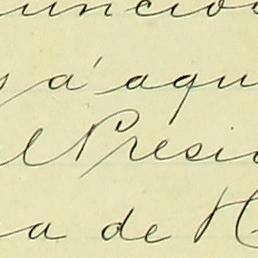 uncio
s á aqu
el Presid
a de H